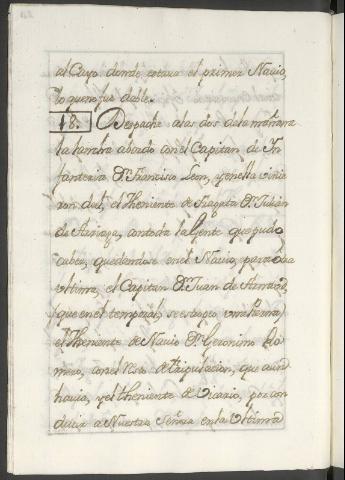 al Cayo donde estava el primer Navio,
lo que no fue dable.
18. Despachè a las dos de la mañana
la lancha abordo con el Capitan de In-
fanteria Dn. Francisco Leon, y en ella vinie
ron del, el Theniente de Fragata Dn. Julian
de Arriaga, con toda la Gente que pudo
caber, quedandose en el Navio, para la
ultima, el Capitan Dn. Juan de
(que en el temporal, se estropeò una Pierna)
el Theniente de Navio Dn. Geronimo Ro
mero, con el resto de tripulacion, que aun
havia, y el theniente de Vicario, por con
ducir a Nuestra Señora en la Ultima